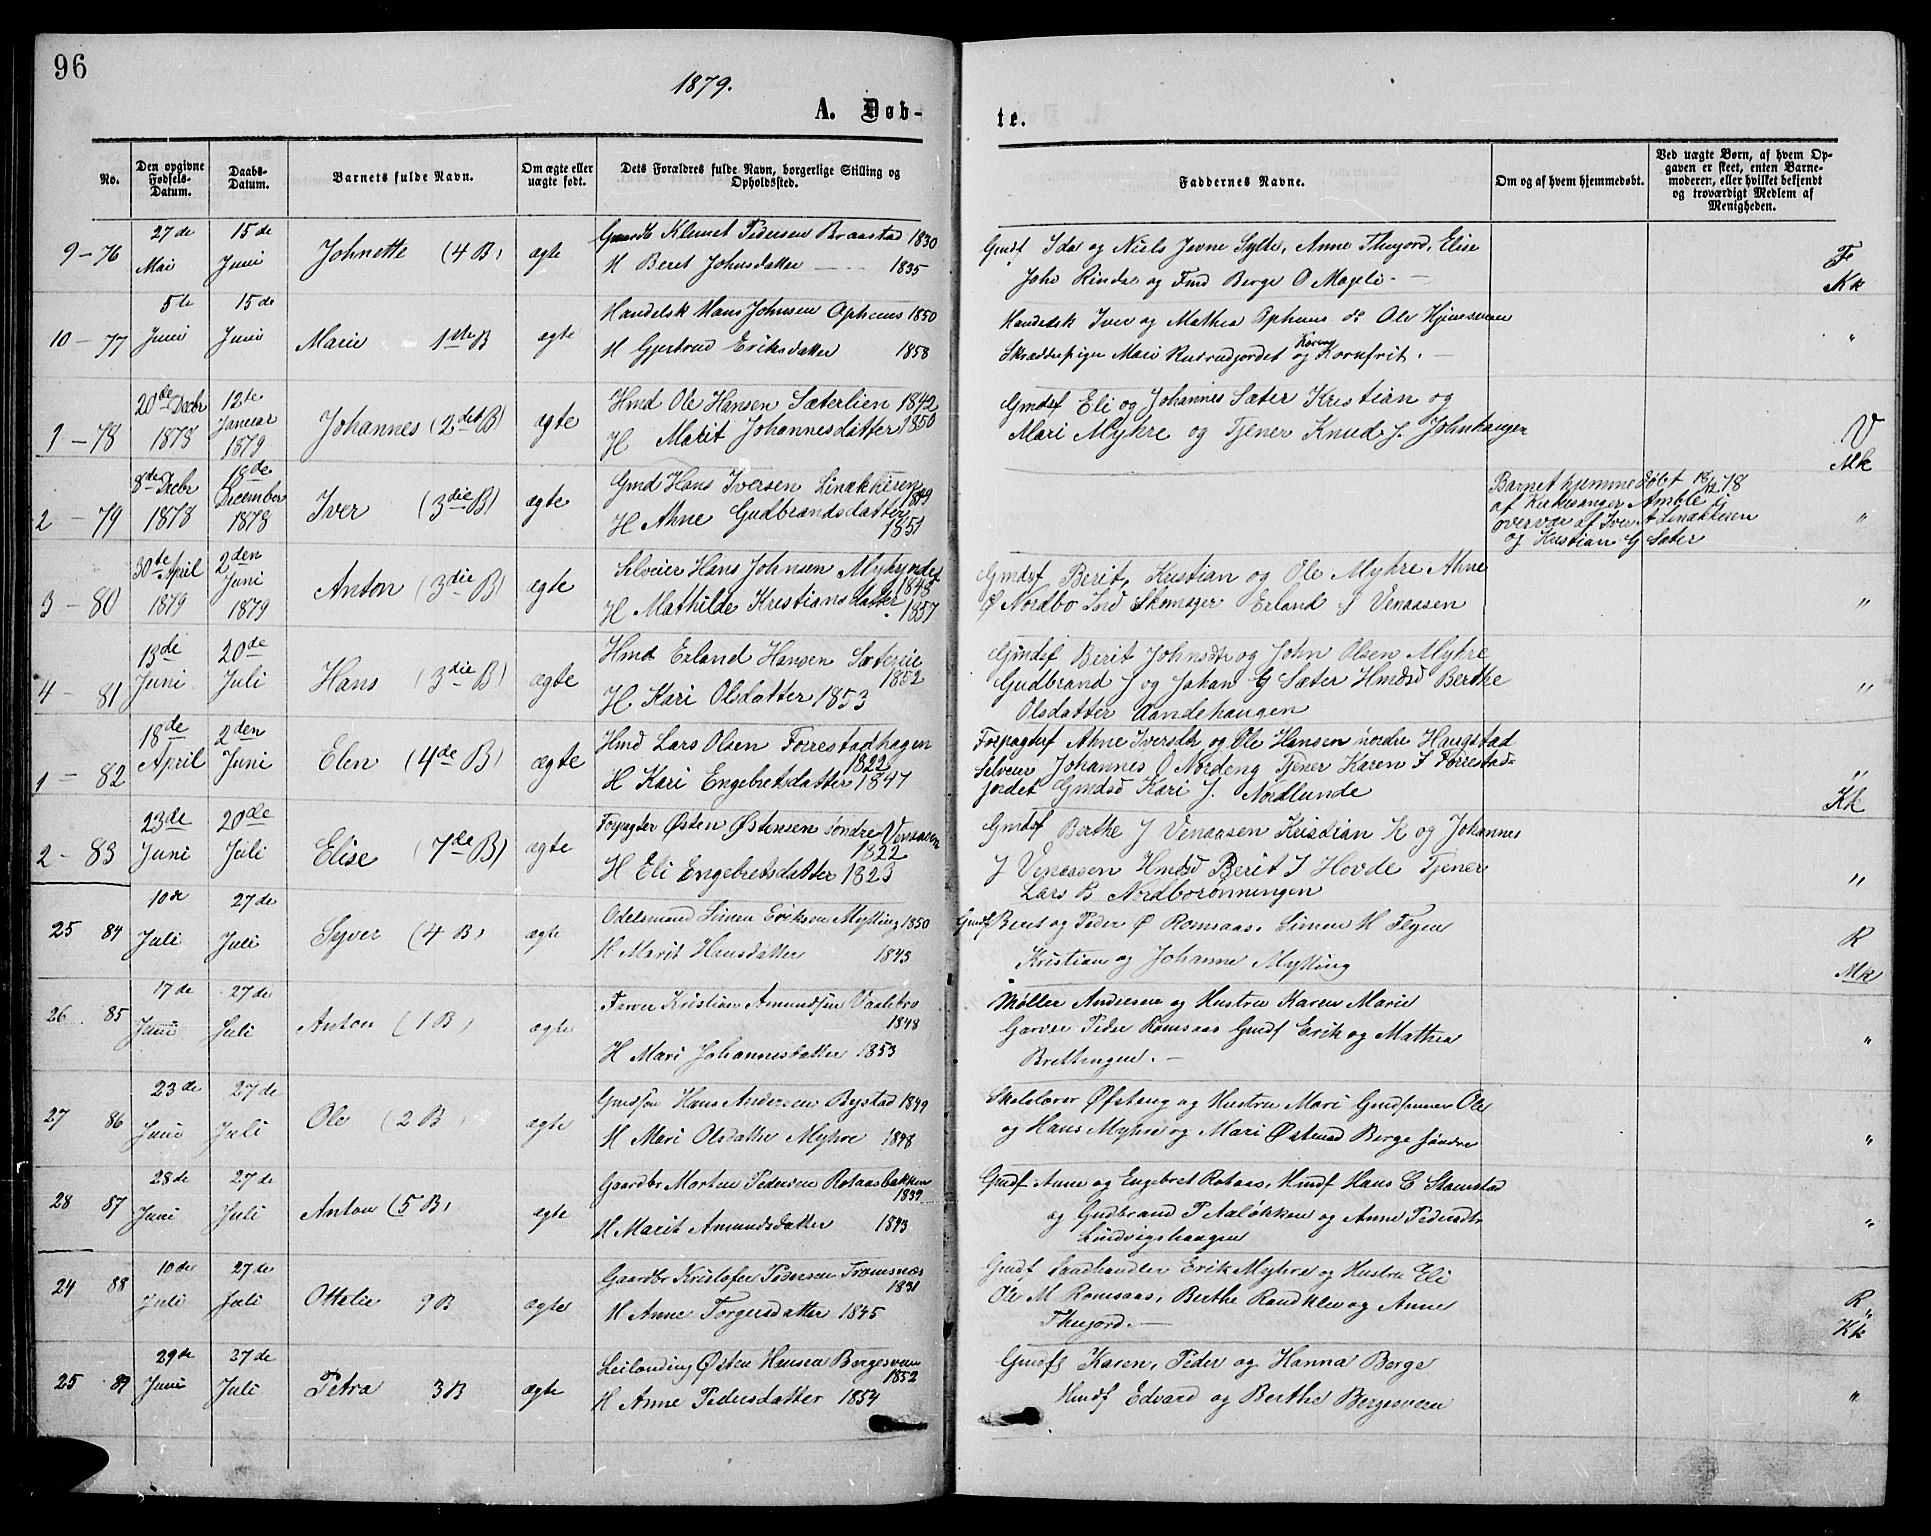 96
1879.
A. Døb-
te.
No.
Den opgivne Fødsels-Datum.
Daabs-Datum.
Barnets fulde Navn.
Om ægte eller uægte født.
Dets Forældres fulde Navn, borgerlige Stilling og Opholdssted.
Faddernes Navne.
Om og af hvem hjemmedøbt.
Ved uægte Børn, af hvem Op-
gaven er skeet, enten Barne-
moderen, eller hvilket bekjendt
og troværdigt Medlem af
Menigheden.
9 - 76 27de Mai 15de Juni Johnette (4 B) ægte
Klemet Pedersen Braastad 1830
H Beret Johnsdatter 1835
Gmdf Ida og Niels Jevne Sylte, Anne Thujord, Elise
Joh Rinde og Fmd Berge O Mageli -
F
Kk
10 - 77 5te Juni 15de Juni Marie 1ste B ægte
Handelsk Hans Johnsen Opheus 1850
H Gjertrud Eriksdatter 1858
Handelsk Iver og Mathea Opheus Ole
Skrædderpige Mari og Kornfrit. -
"
1 - 78 20de Decbr 1878 12te Januar 1879 Johannes (2det B) ægte
Hmd Ole Hansen Sæterlien 1842
H Marit Johannesdatter 1850
Gmdsf Eli og Johannes Sæter Kristian og
Mari Myhre og Tjener Knud J. Johnhaugen
V
Mk
2 - 79 8de Decbr 1878 18de December 1878 Iver (3die B) ægte
Gmd Hans Iversen Linækkeren 1849
H Ahne Gudbrandsdatter 1851
Barnet hjemmedøbt 18/12 78
af Kirkesanger Amble i
overvær af Iver A Linækkeren
og Kristian G Sæter
"
3 - 80 30te April 1879 2den Juni 1879 Anton (3die B) ægte
Selveier Hans Johnsen 1843
H Mathilde Kristiansdatter 1857
Gmdsf Berit, Kristian og Ole Myhre Ahne
Ø Nordbo Ind Skomager Erland S Venaasen
"
4 - 81 13de Juni 20de Juli Hans (3die B) ægte
Hmd Erland Hansen Sætereie 1852
H Kari Olsdatter 1853
Gmdsf Berit Johnsdtr og John Olsen Myhre
Gudbrand J og Johan G Sæter Hmdsd Berthe
Olsdatter Aandehaugen
"
1 - 82 18de April 2den Juni Elen (4de B) ægte
Hmd Lars Olsen Forrestadhagen 1822
H Kari Engebretsdatter 1847
Forpagterf Ahne Iversdtr og Ole Hansen nordre Haugstad
Selveier Johannes O Nordeng Tjener Karen I Forrestad-
jordet Gmdsd Kari J. Nordlunde
"
Kk
2 - 83 23de Juni 20de Juli Elise (7de B) ægte
Forpagter Østen Østensen søndre Venaasen 1822
H Eli Engebretsdatter 1823
Gmdsf Berthe J Venaasen Kristian K og Johannes
J Venaasen Hmdsd Berit I Hovde Tjener
Lars B Nordborønningen
"
25 84 10de Juli 27de Juli Syver (4 B) ægte
Odelsmand Simen Eriksen Mytting 1850
H Marit Hansdatter 1843
Gmdf Beret og Peder Ø Romsaas, Simen H Flyen
Kristian og Johanne Mytting
R
Mk
26 85 17de Juni 27de Juli Anton (1 B) ægte
Farver Kristian Amundsen Vaalebro 1848
H Mari Johannesdatter 1853
Møller Andersen og Hustru Karen Marie
Garver Peder Romsaas Gmdf Erik og Mathea
Brettingen. -
"
27 86 23de Juni 27de Juli Ole (2 B) ægte
Gmdsøn Hans Andersen Bystad 1849
H Mari Olsdatter Myhre 1848
Skolelærer Øfsteng og Hustru Mari Gmdsønner Ole
og Hans Myhre og Mari Østensd Berge søndre
"
28 87 28de Juni 27de Juli Anton (5 B) ægte
Gaardbr Morten Pedersen Rotaasbakken 1839
H Marit Amundsdatter 1843
Gmdf Anne og Engebret Rotaas, Hmdf Hans C Stamstad
og Gudbrand P Aaløkken og Anne Pedersdtr
Lindvigshaugen
"
24 88 10de Juli 27de Juli Ottelie 9 B ægte
Gaardbr Kristofer Pedersen Tromsnæs 1831
H Anne Torgersdatter 1845
Gmdf Landhandler Erik Myhre og Hustru Eli
Ole M Romsaas, Berthe Randklev og Anne
Thujord. -
R
Kk
25 89 29de Juni 27de Juli Petra 3 B ægte
Leilænding Østen Hansen Bergesveen 1852
H Anne Pedersdatter 1854
Gmdf Karen, Peder og Hanna Berge
Hmdf Edvard og Berthe Bergesveen
"